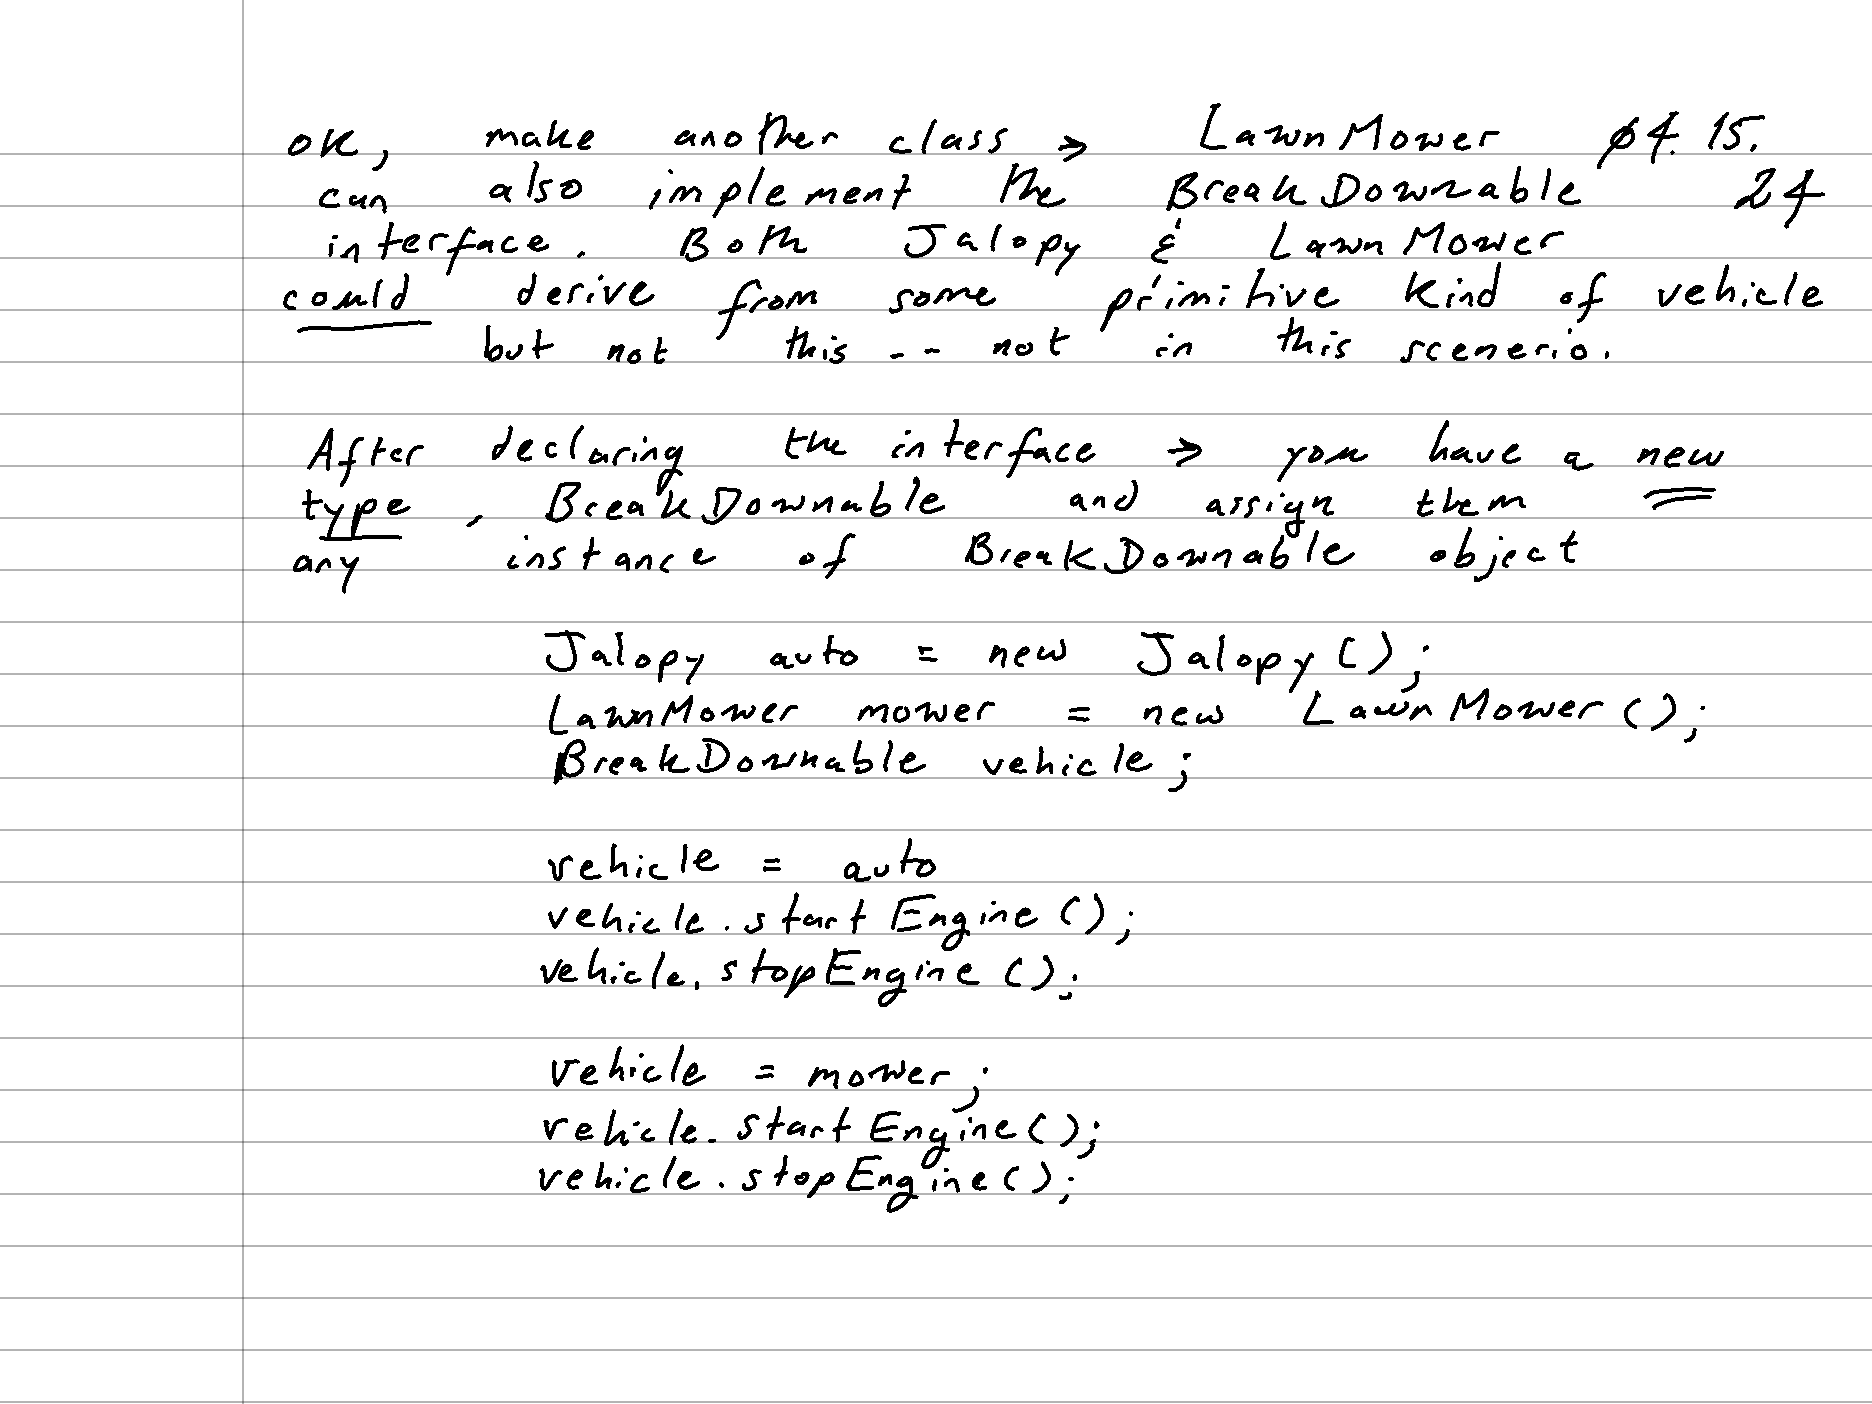 ok, make another class → LawnMower 04.15.
can also implement the BreakDownable 24
interface. Both Jalopy & LawnMower
could derive from some primitive kind of vehicle
but not this -- not in this scenerio.
After declaring the interface → you have a new
type, BreakDownable and assign them
any instance of BreakDownable object
Jalopy auto = new Jalopy();
LawnMower mower = new LawnMower();
BreakDownable vehicle;
vehicle = auto
vehicle.startEngine();
vehicle.stopEngine();
vehicle = mower;
vehicle.startEngine();
vehicle.stopEngine();